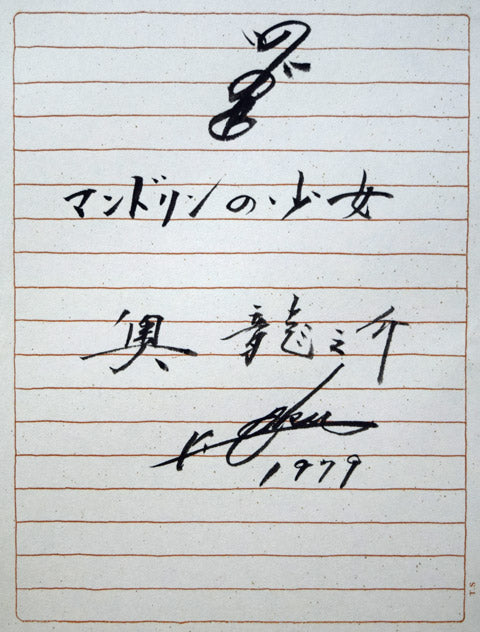 マンドリンの少女
奥 龍之介
r. oku
1979
T.S